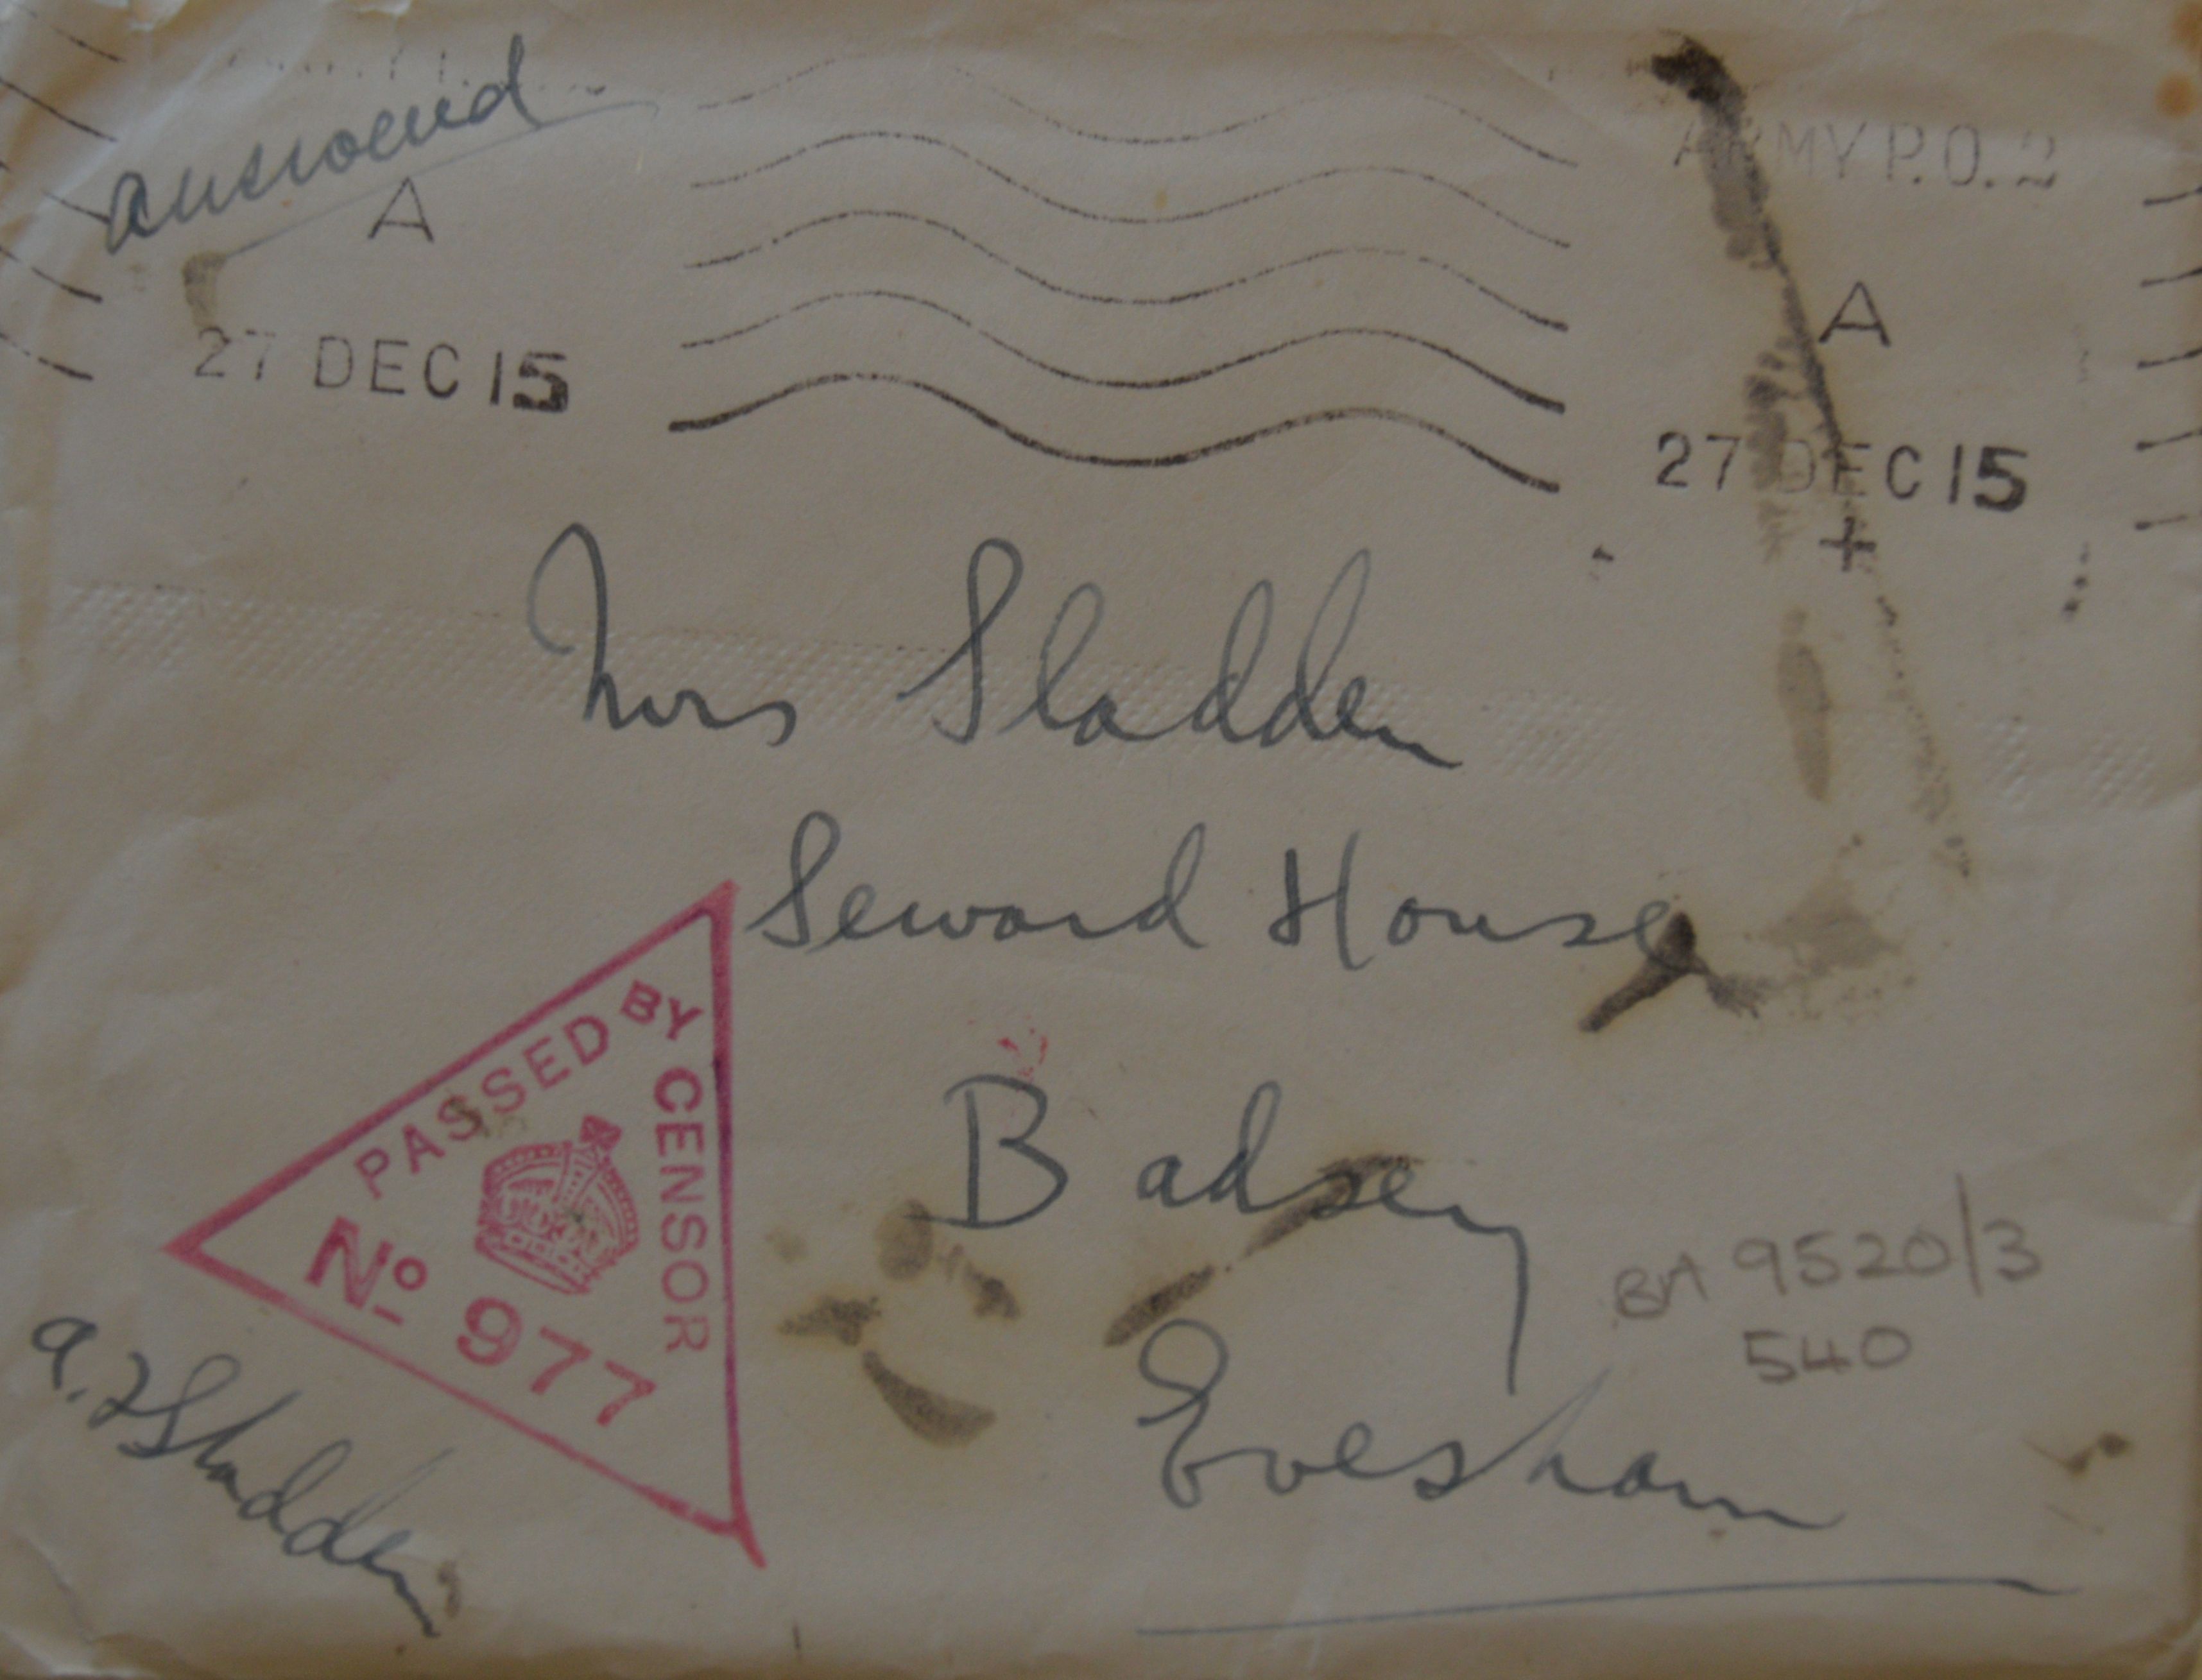 answered
A
27 DEC 15
ARMY P.O. 2
A
27 DEC 15
+
Mrs Sladden
Seward House
Badsey
Evesham
PASSED BY CENSOR
No 977
BA 9520/3
540
Sladden